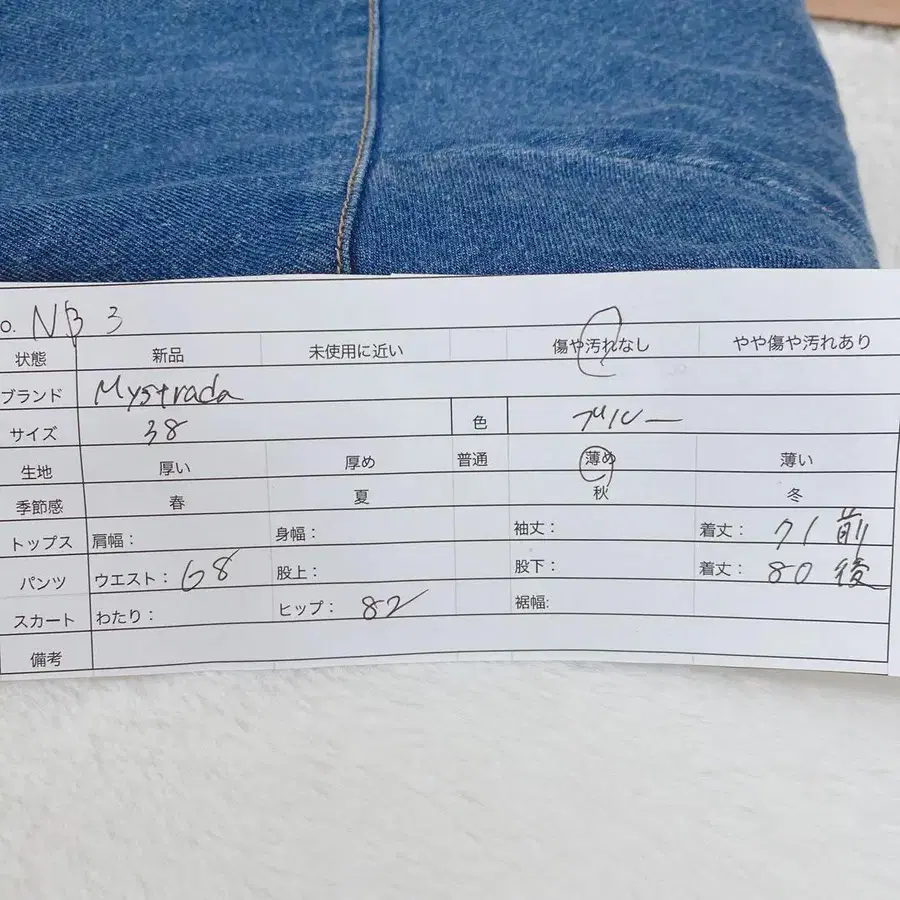 o. NB 3
状態 新品 未使用に近い 傷や汚れなし やや傷や汚れあり
ブランド Mystrada
サイズ 38 色 ブルー
生地 厚い 厚め 普通 薄め 薄い
季節感 春 夏 秋 冬
トップス 肩幅： 身幅： 袖丈： 着丈： 71 前
パンツ ウエスト： 68 股上： 股下： 着丈： 80 後
スカート わたり： ヒップ： 82 裾幅:
備考